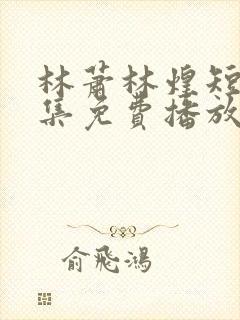 林萧林煌短
集免費播放
俞飛鴻